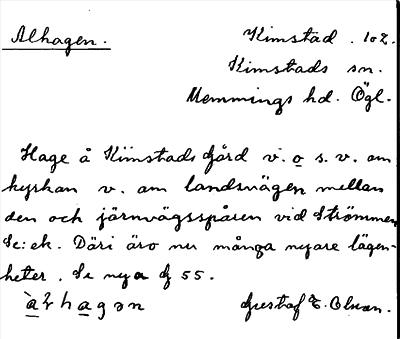 Alhagen. Kimstad . 102.
Kimstads sn.
Memmings hd. Ögl.
Hage å Kimstads gård v. o s. v. om
kyrkan v. om landsvägen mellan
den och järnvägsspåren vid Strömmen
Se: ek. Däri äro nu många nyare lägen-
heter. Se nya 55.
Gustaf E. Olson.